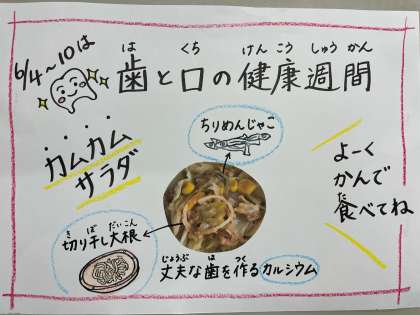 6/4~10は
歯と口の健康週間
は くち けん こう しゅう かん
カムカム
サラダ
ちりめんじゃこ
よーく
かんで
食べてね
た
切り干し大根
き ぼ だいこん
丈夫な歯を作るカルシウム
じょうぶ は つく